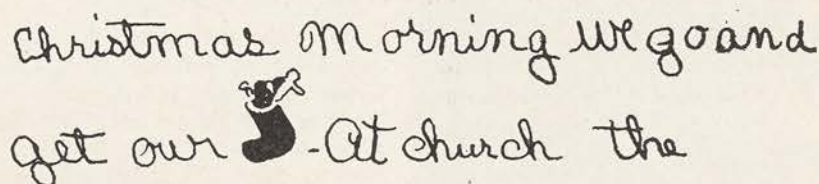 Christmas Morning We go and
get our - At church the